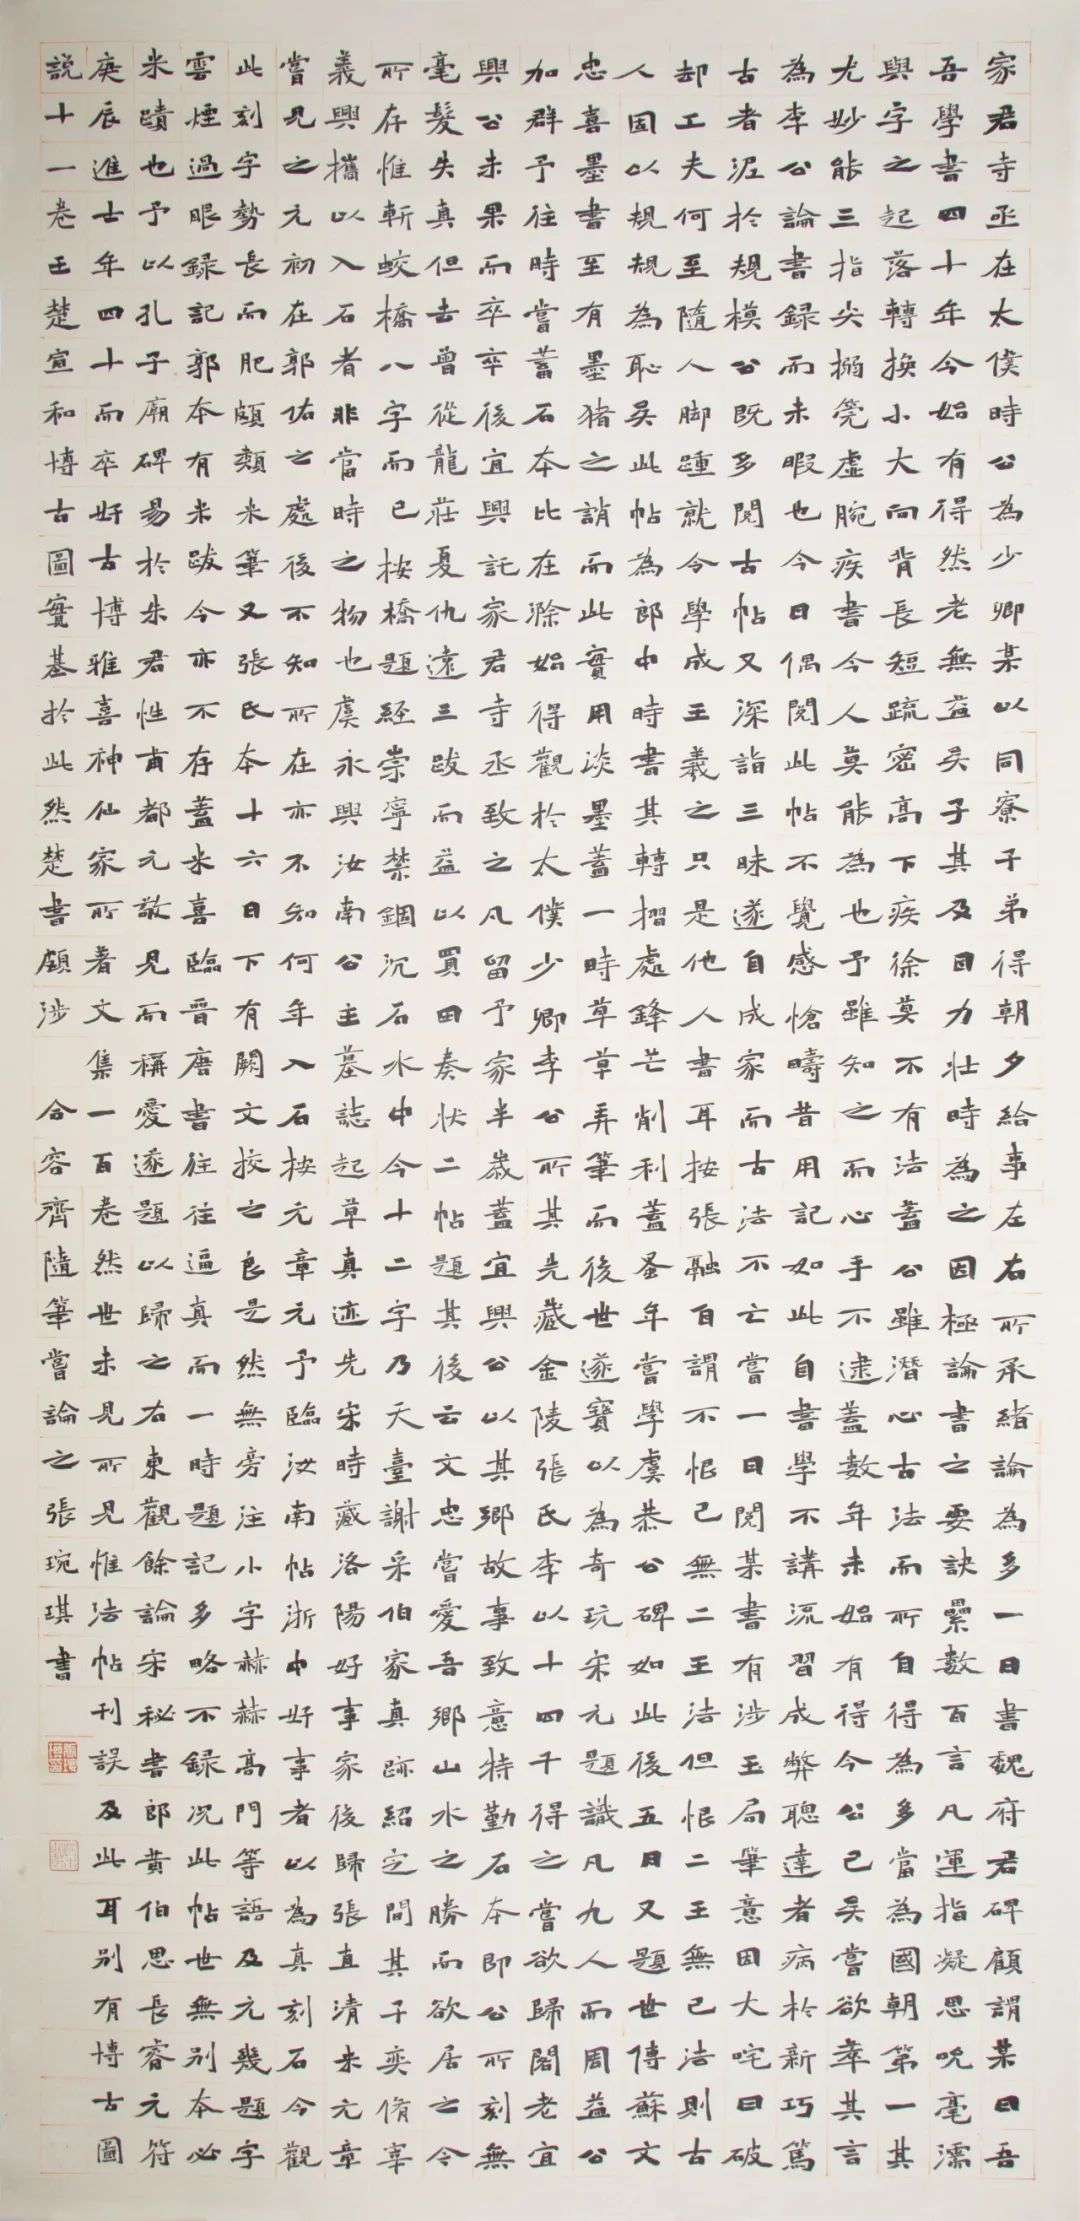 家君寺丞在太僕時公為少卿某以同寮子弟得朝夕給事左右所承緒論為多一日書魏府君碑顧謂某曰吾
吾學書四十年今始有得然老無益矣子其及目力壯時為之因極論書之要訣纍數百言凡運指凝思吮毫濡
與字之起落轉換小大向背長短疏密高下疾徐莫不有法蓋公雖潛心古法而所自得為多當為國朝第一其
尤妙能三指尖搦筦虛腕疾書今人莫能為也予雖知之而心手不逮蓋數年未始有得今公已矣嘗欲萃其言
為李公論書録而未暇也今日偶閱此帖不覺感愴疇昔用記如此自書學不講流習成弊聰達者病於新巧篤
古者泥於規模公既多閱古帖又深詣三昧遂自成家而古法不亡嘗一日閱某書有涉玉局筆意因大咤曰破
却工夫何至隨人脚踵就令學成王羲之只是他人書耳按張融自謂不恨己無二王法但恨二王無己法則古
人固以規規為恥矣此帖為郎中時書其轉摺處鋒芒削利蓋蚤年嘗學虞恭公碑如此後五日又題世傳蘇文
忠喜墨書至有墨猪之誚而此實用淡墨蓋一時草草弄筆而後世遂寶以為奇玩宋元題識凡九人而周益公
加群予往時嘗蓄石本比在滁始得觀於太僕少卿李公所其先藏金陵張氏李以十四千得之嘗欲歸閣老宜
興公未果而卒卒後宜興託家君寺丞致之凡留予家半歲蓋宜興公以其鄉故事致意特勤石本即公所刻無
毫髮失真但去曾從龍莊夏仇遠三跋而益以買田奏狀二帖題其後云文忠嘗愛吾鄉山水之勝而欲居之今
所存惟斬蛟橋八字而已按橋題經崇寧禁錮沉石水中今十二字乃天臺謝采伯家真跡紹定間其子奕脩宰
義興攜以入石者非當時之物也虞永興汝南公主墓誌起草真迹先宋時藏洛陽好事家後歸張直清米元章
嘗見之元初在郭佑之處後不知所在亦不知何年入石按元章元予臨汝南帖浙中好事者以為真刻石今觀
此刻字勢長而肥頗類米筆又張氏本十六日下有闕文按之良是然無旁注小字赫赫高門等語及元幾題字
雲煙過眼録記郭本有米跋今亦不存蓋米喜臨晉唐書往往逼真而一時題記多略不録況此帖世無別本必
米蹟也予以孔子廟碑易於朱君性甫都元敬見而稱愛遂題以歸之右東觀餘論宋秘書郎黄伯思長睿元符
庚辰進士年四十而卒好古博雅喜神仙家所著文集一百卷然世未見所見惟法帖刊誤及此耳別有博古圖
説十一卷王楚宣和博古圖實基於此然楚書頗涉 合容齊隨筆嘗論之張琬琪書